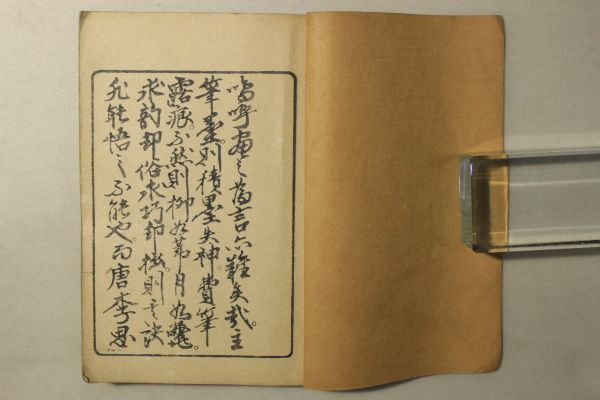 嗚呼画之為言亦難矣哉。主
筆墨。則積墨失神。費筆
露痕。不然則柳如帚月如甕。
求韵却俗求巧却拙則其訣
非能悟之不能也。而唐李思